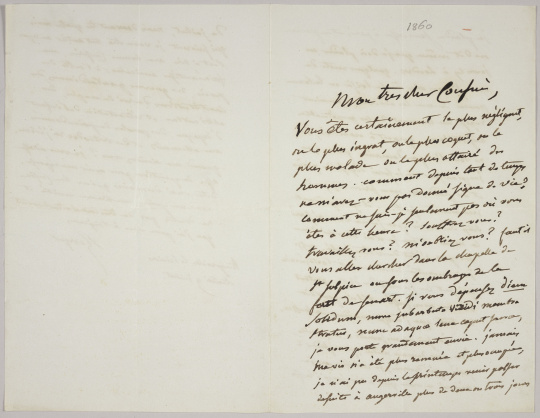 1860
Mon tres cher Cousin,
Vous êtes certainement le plus négligent,
ou le plus ingrat, ou le plus coquet, ou le
plus malade ou le plus affairé des
hommes. comment depuis tant de temps
ne m'avez-vous pas donné signe de vie?
comment ne sais-je seulement pas où vous
êtes à cette heure? souffrez vous?
travaillez vous? m'oubliez vous? faut il
vous aller chercher dans la chapelle de
St Sulpice ou sous les ombrages de la
forêt de Senart. si vous dépensez diem
solidum, nunc sub arbuto viridi membra
stratus, nunc ad aquæ lene caput sacræ,
je vous porte grandement envie. jamais
ma vie n'a été plus remuée et plus occupée,
je n'ai pu depuis le printemps venir passer
à augerville plus de deux ou trois jours